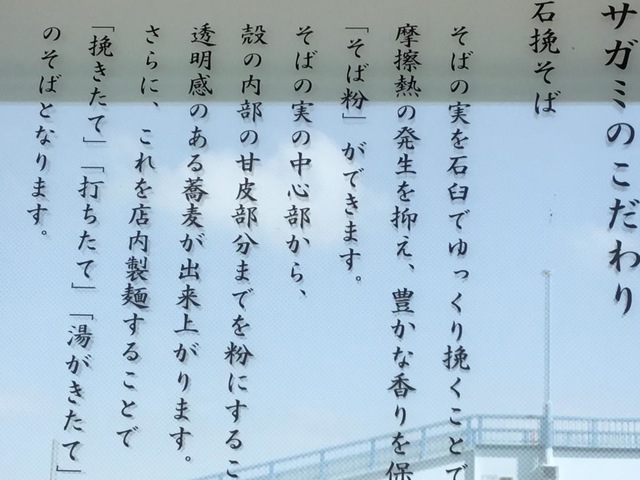 サガミのこだわり
石挽そば
そばの実を石臼でゆっくり挽くことで
摩擦熱の発生を抑え、豊かな香りを保
「そば粉」ができます。
そばの実の中心部から、
殻の内部の甘皮部分までを粉にするこ
透明感のある蕎麦が出来上がります。
さらに、これを店内製麺することで
「挽きたて」「打ちたて」「湯がきたて」
のそばとなります。